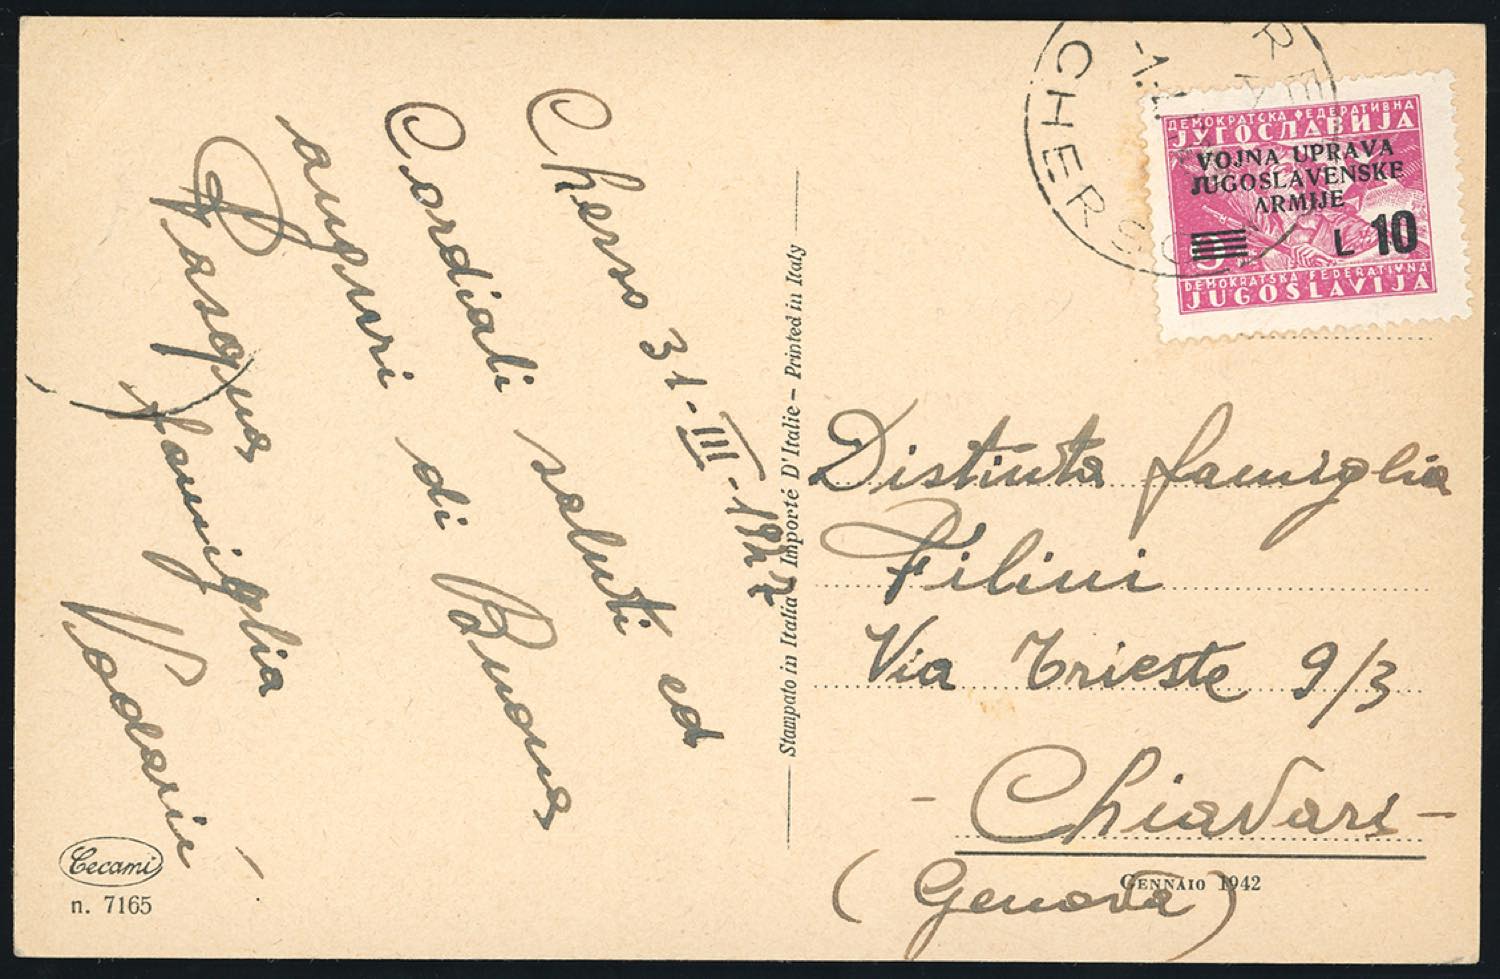 Cherso 31-III-1947
Cordiali saluti ed
auguri di Buona
Pasqua
famiglia
Vodarić
Cecami
n. 7165
Stampato in Italia Importé D'Italie – Printed in Italy
CHERSO
ДЕМОКРАТСКА ФЕДЕРАТИВНА
ЈУГОСЛАВИЈА
VOJNA UPRAVA
JUGOSLAVENSKE
ARMIJE
9 L 10
DEMOKRATSKA FEDERATIVNA
JUGOSLAVIJA
Distinta famiglia
Filini
Via Trieste 9/3
- Chiavari -
(Genova)
GENNAIO 1942